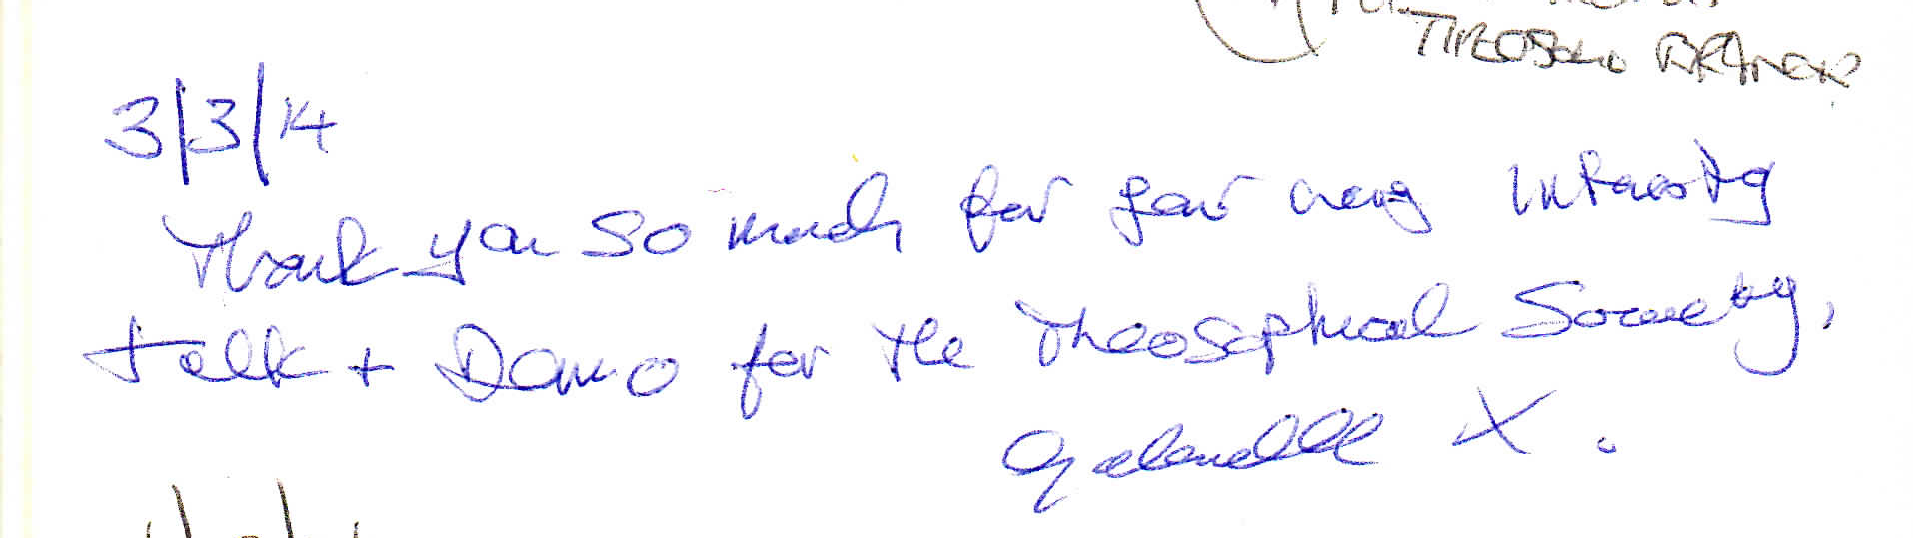 3/3/14
Thank you so much for your very interesting
talk + Demo for the Theosophical Society,
Gabrielle X.